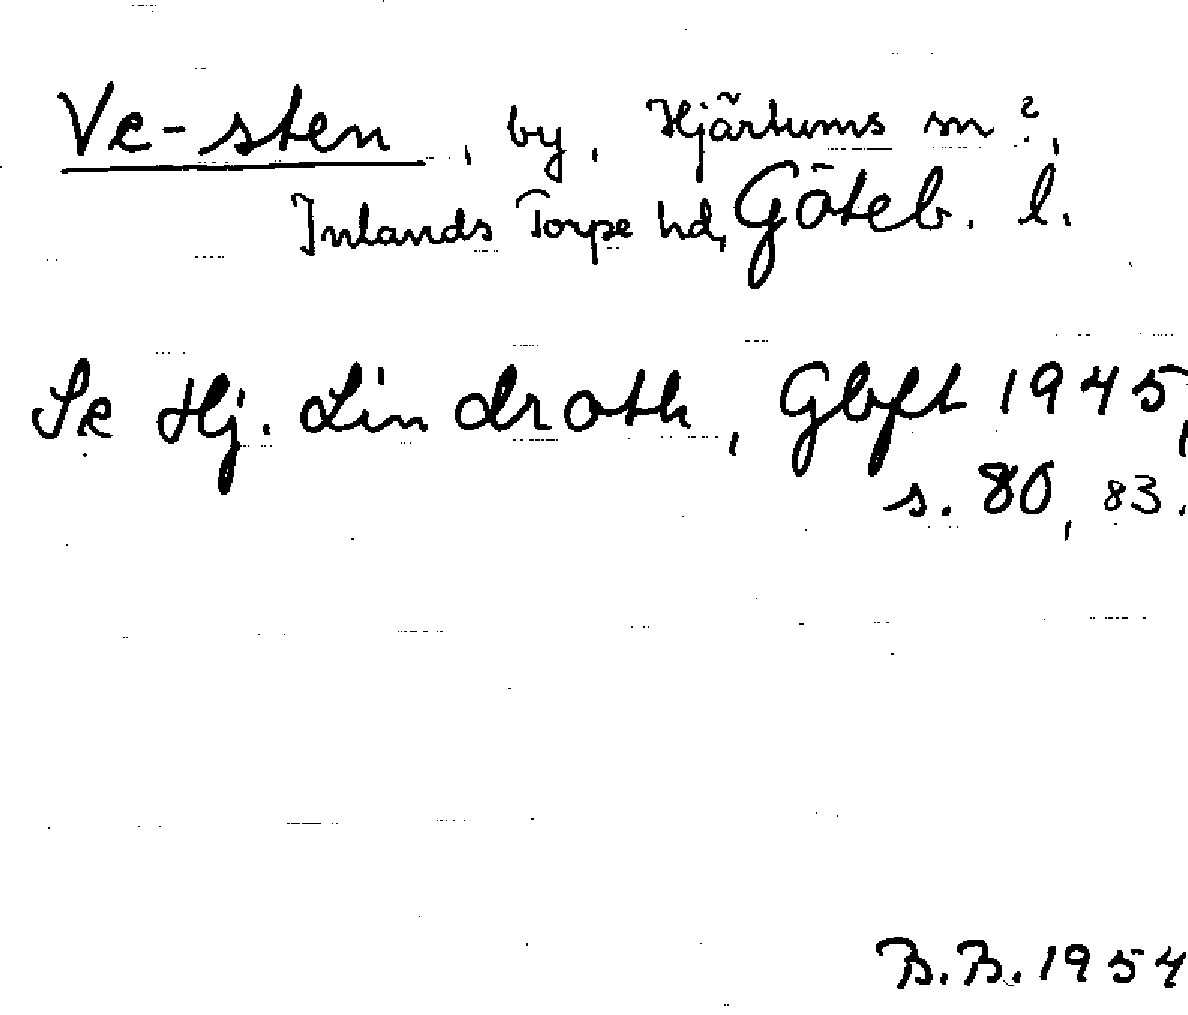 Ve-sten, by, Hjärtums sn?,
Inlands Torpe hd, Göteb. l.
Se Hj. Lindroth, Gbft 1945,
s. 80, 83.
B.B. 1954